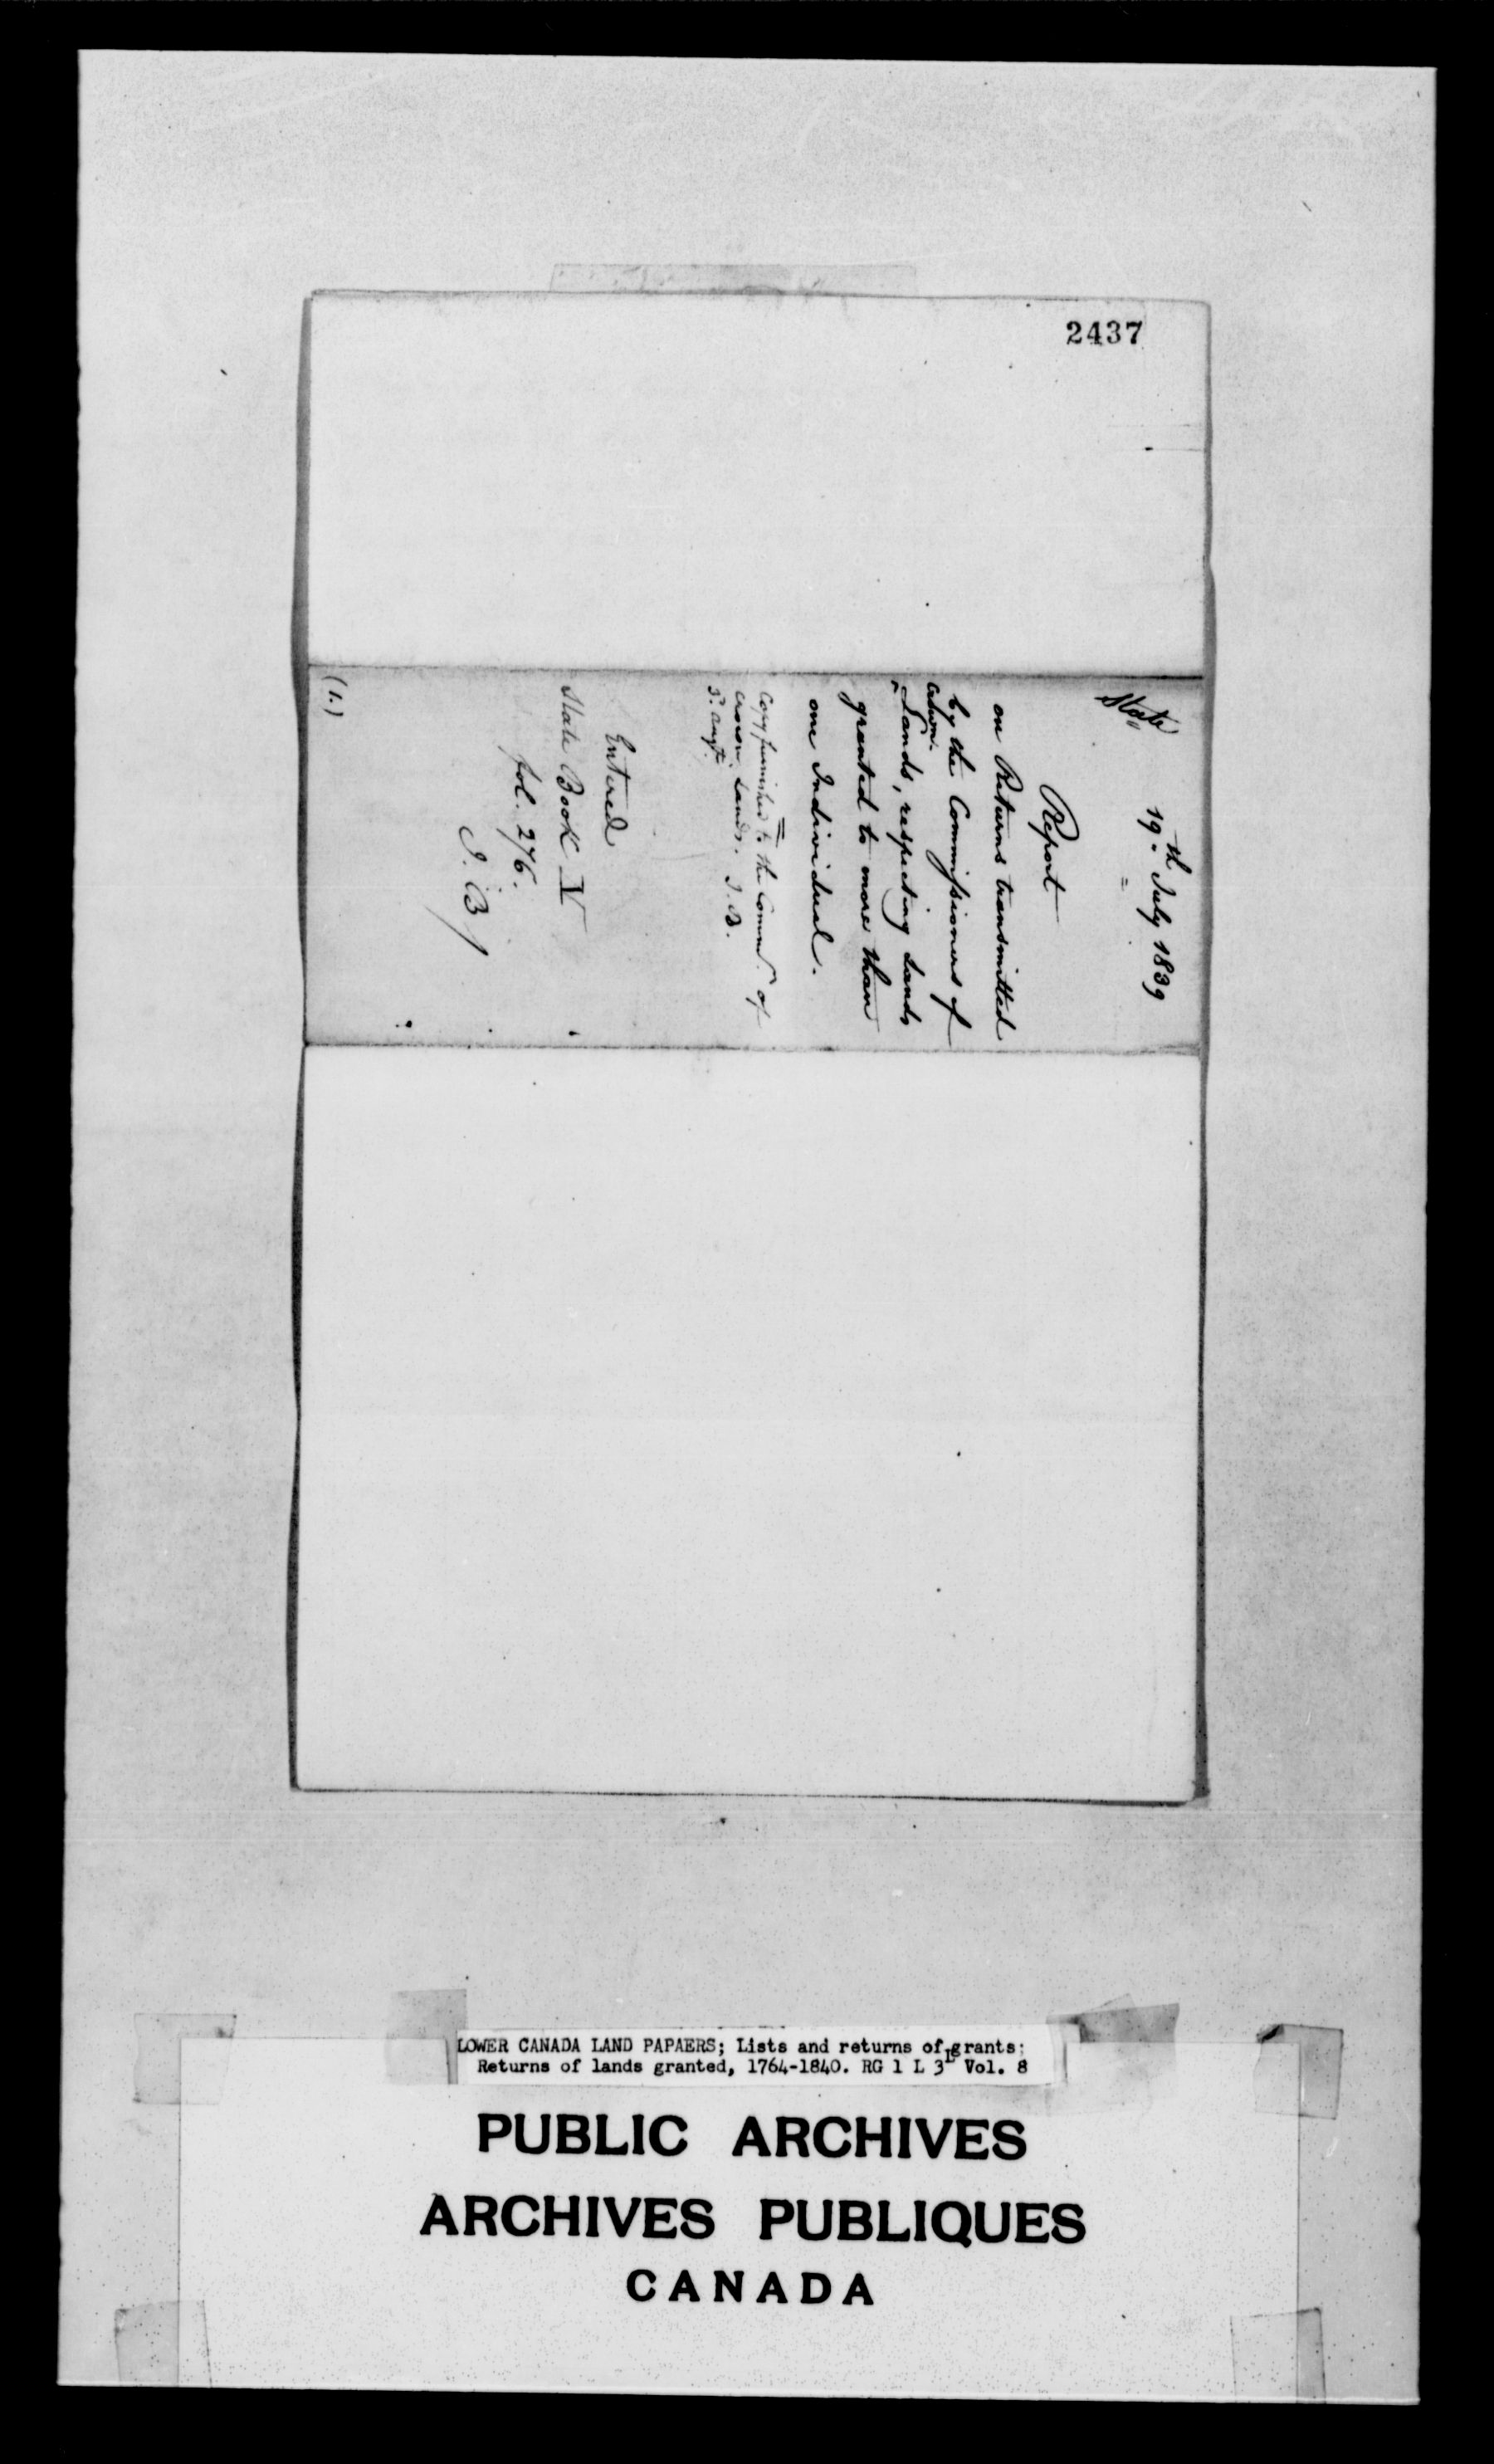 2437
State
19th July 1839
Report
on Returns transmitted
by the Commissioners of
Crown
^ Lands, respecting Lands
granted to more than
one Individual.
Copy furnished to the Commr. of
Crown Lands. J.B.
5. Augt.
Entered
State Book V
fol. 276.
J.B/
(1.)
LOWER CANADA LAND PAPAERS; Lists and returns of grants:
Returns of lands granted, 1764-1840. RG 1 L 3L Vol. 8
PUBLIC ARCHIVES
ARCHIVES PUBLIQUES
CANADA